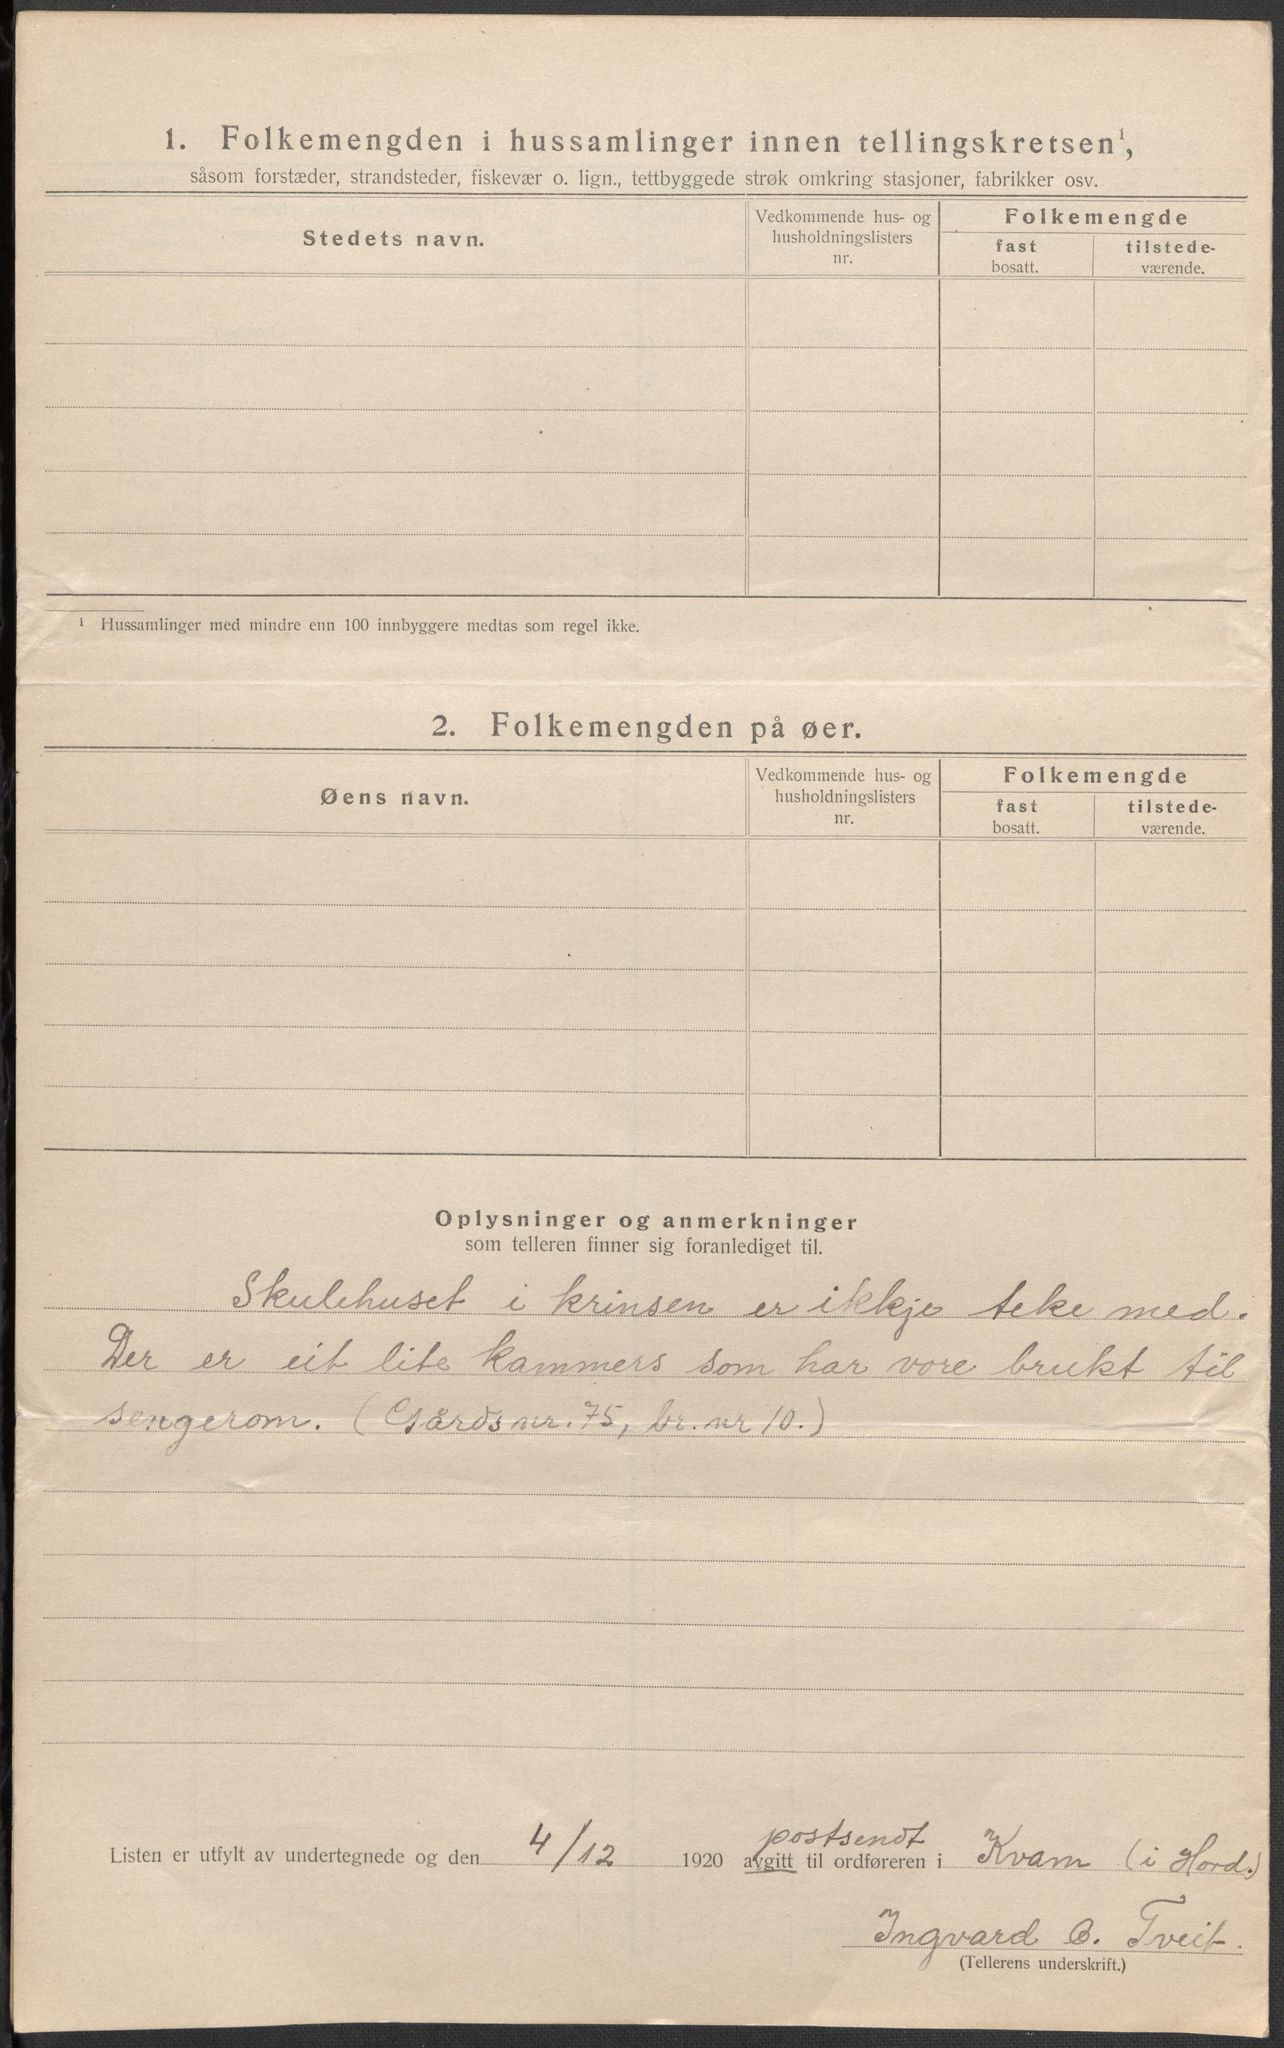 1. Folkemengden i hussamlinger innen tellingskretsen¹,
såsom forstæder, strandsteder, fiskevær o. lign., tettbyggede strøk omkring stasjoner, fabrikker osv.
Stedets navn.
Vedkommende hus- og
husholdningslisters
nr.
Folkemengde
fast
bosatt.
tilstede-
værende.
¹ Hussamlinger med mindre enn 100 innbyggere medtas som regel ikke.
2. Folkemengden på øer.
Øens navn.
Vedkommende hus- og
husholdningslisters
nr.
Folkemengde
fast
bosatt.
tilstede-
værende.
Oplysninger og anmerkninger
som telleren finner sig foranlediget til.
Skulehuset i krinsen er ikkje teke med.
Der er eit lite kammers som har vore brukt til
sengerom. (Gårdsnr. 75, br. nr 10.)
postsendt
Listen er utfylt av undertegnede og den 4/12 1920 avgitt til ordføreren i Kvam (i Hord.)
Ingvard O. Tveit.
(Tellerens underskrift.)